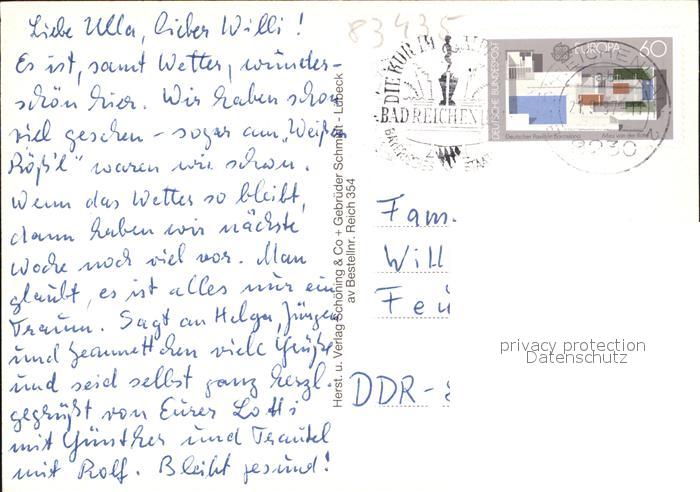 Liebe Ulla, lieber Willi!
Es ist, samt Wetter, wunder-
schön hier. Wir haben schon
viel gesehen - sogar am "Weißen
Rößl" waren wir schon.
Wenn das Wetter so bleibt,
dann haben wir nächste
Woche noch viel vor. Man
glaubt, es ist alles nur ein
Traum. Sagt an Helga, Jürgen
und Jeannettchen viele Grüße
und seid selbst ganz herzl.
gegrüßt von Eurer Lotti
mit Günther und Trautel
mit Rolf. Bleibt gesund!
83435
DIE KUR IM
BAD REICHEN
EUROPA 60
DEUTSCHE BUNDESPOST
Deutscher Pavillon Barcelona
Mies van der Rohe
8230
Herst. u. Verlag Schöning & Co + Gebrüder Schmidt - Lübeck
av Bestellnr. Reich 354
Fam.
Will
Feu
DDR-
privacy protection
Datenschutz